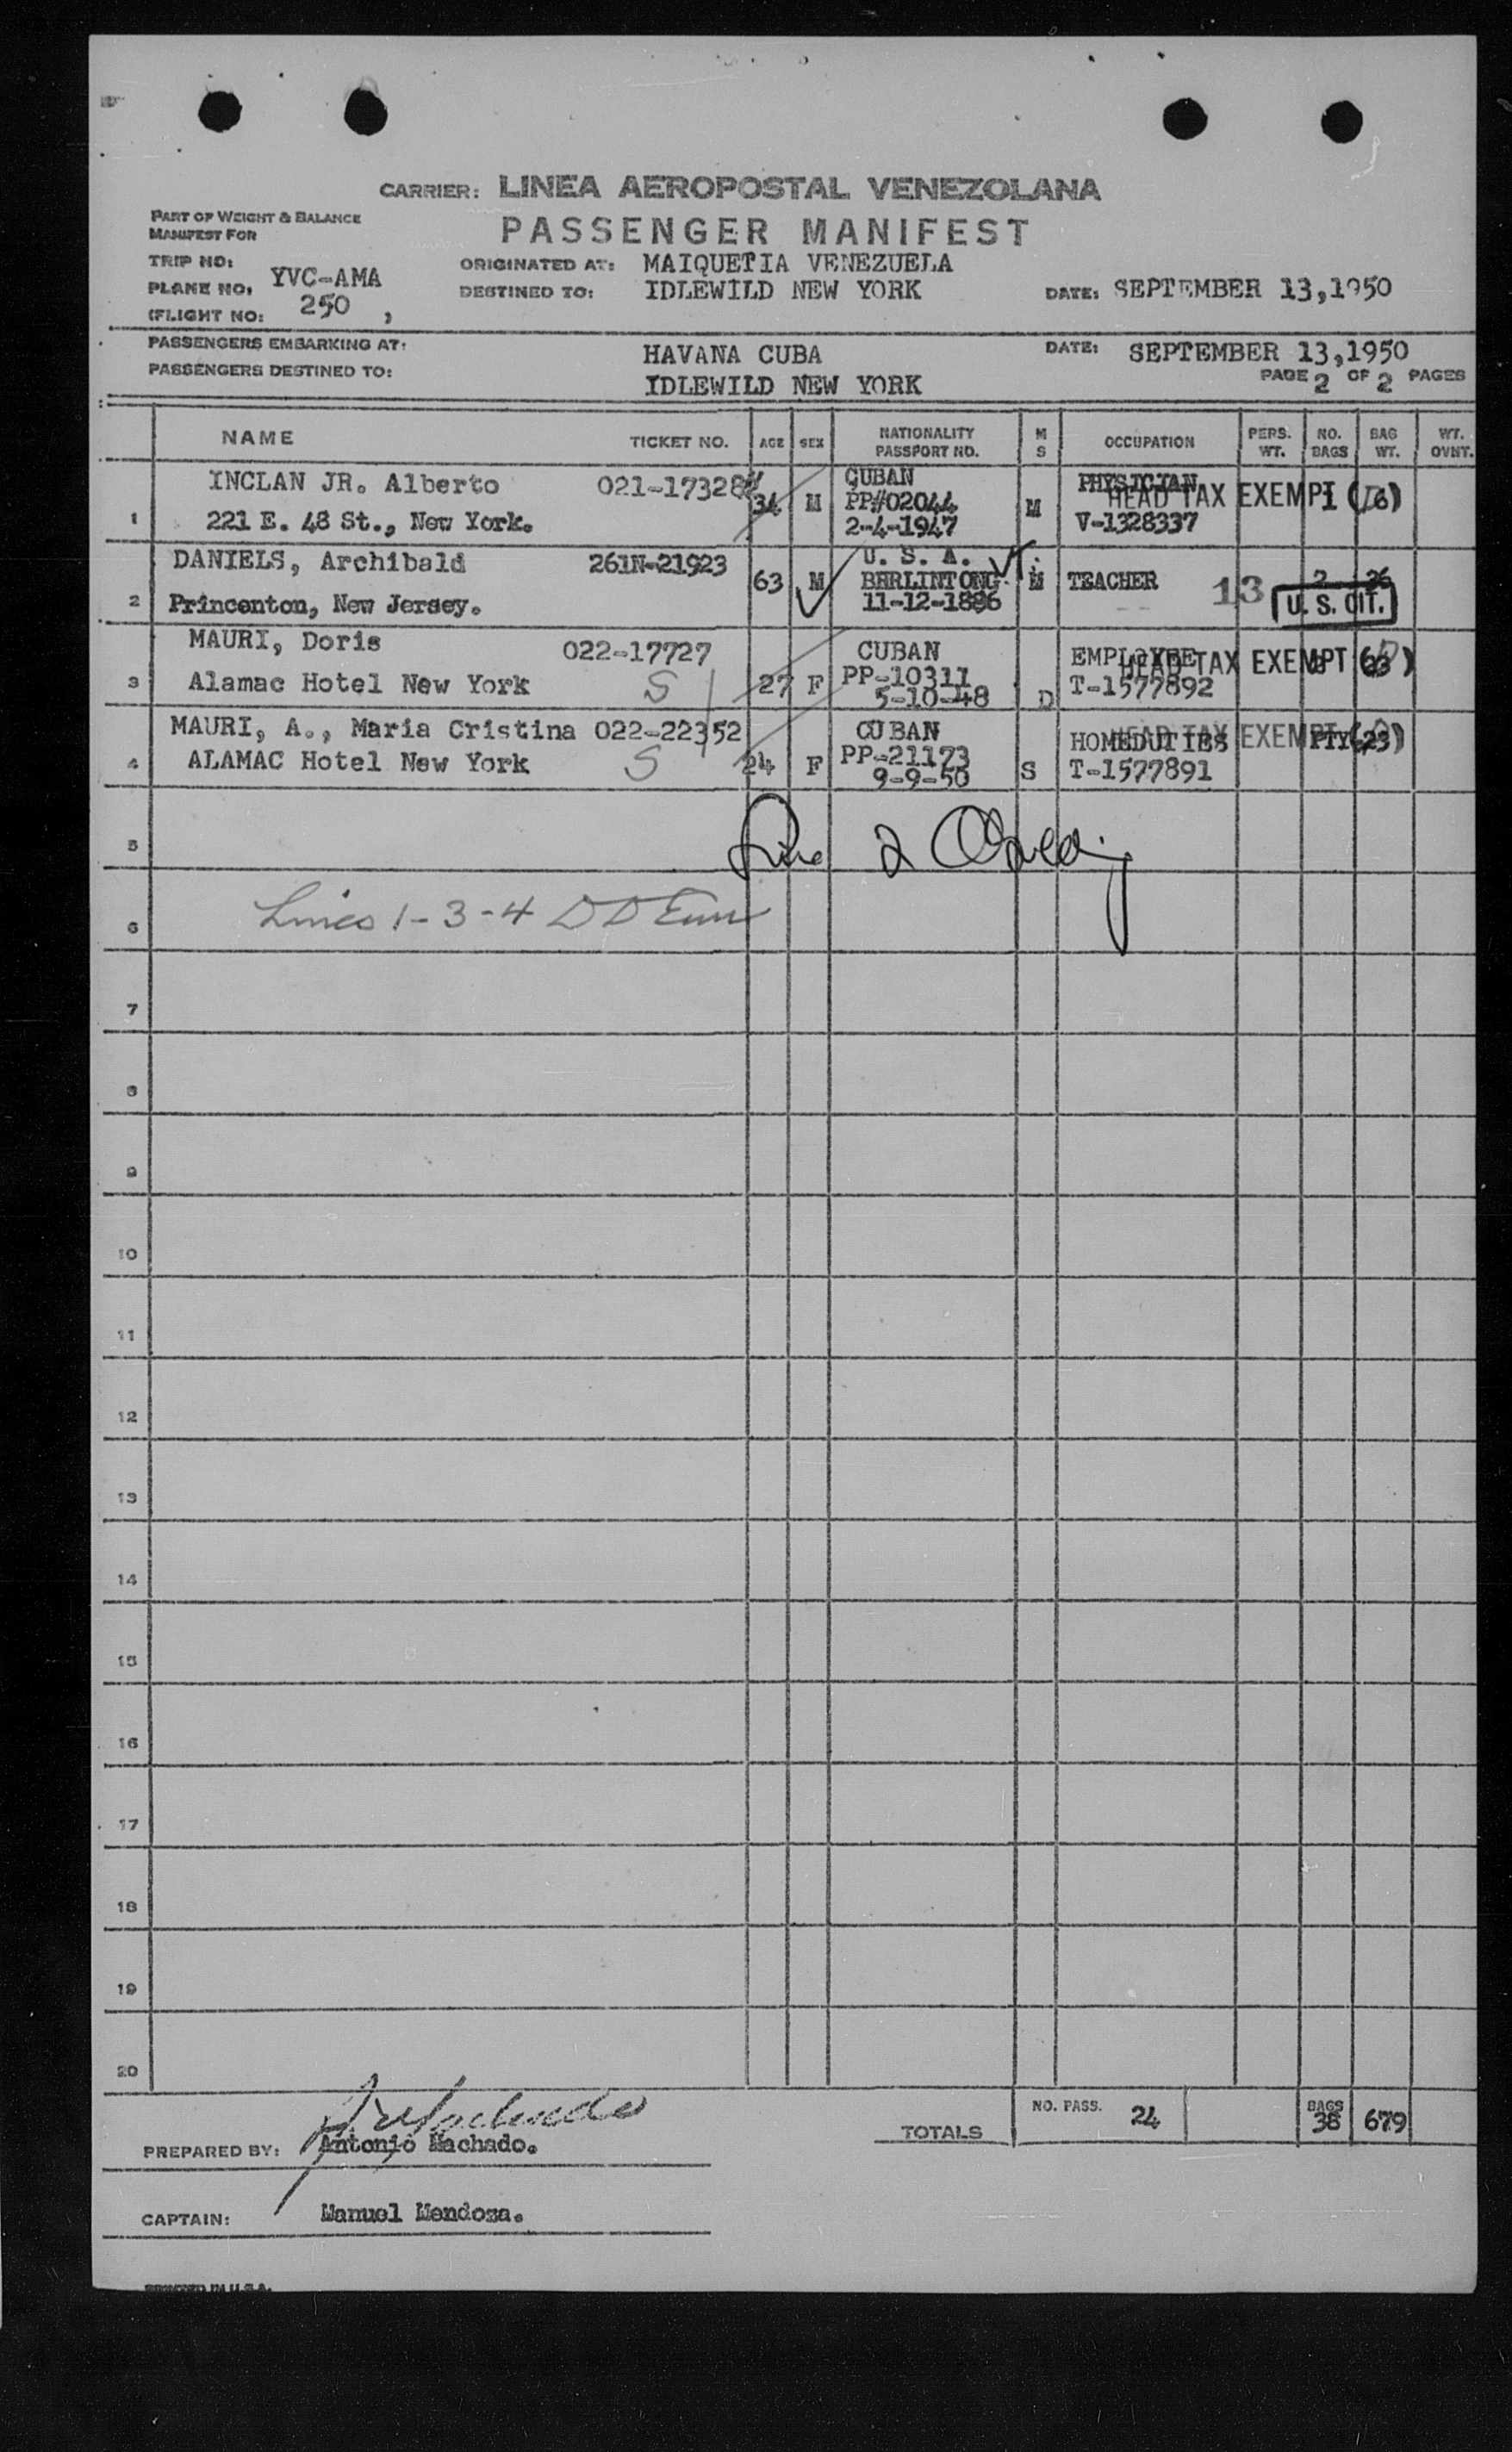 CARRIER: LINEA AEROPOSTAL VENEZOLANA
PART OF WEIGHT & BALANCE
MANIFEST FOR
PASSENGER MANIFEST
TRIP NO:
PLANE NO. YVC-AMA
(FLIGHT NO: 250 )
ORIGINATED AT: MAIQUETIA VENEZUELA
DESTINED TO: IDLEWILD NEW YORK
DATE: SEPTEMBER 13,1950
PASSENGERS EMBARKING AT: HAVANA CUBA
DATE: SEPTEMBER 13,1950
PASSENGERS DESTINED TO: IDLEWILD NEW YORK
PAGE 2 OF 2 PAGES
NAME TICKET NO. AGE SEX NATIONALITY PASSPORT NO. M S OCCUPATION PERS. WT. NO. BAGS BAG WT. WT. OVNT.
INCLAN JR. Alberto 021-17328 CUBAN PHYSICIAN
34 M PP#02044 M HEAD TAX EXEMPT
1 221 E. 48 St., New York. 2-4-1947 V-1328337
DANIELS, Archibald 261N-21923 U. S. A.
63 M BERLINTONG M TEACHER 13 2 26
2 Princenton, New Jersey. 11-12-1886 U. S. CIT.
MAURI, Doris 022-17727 CUBAN EMPLOYEE
HEAD TAX EXEMPT
3 Alamac Hotel New York S 27 F PP-10311 5-10-48 D T-1577892
MAURI, A., Maria Cristina 022-22352 CUBAN HOMEDUTIES
HEAD TAX EXEMPT
4 ALAMAC Hotel New York S 24 F PP-21173 9-9-50 S T-1577891
5
Line 2
6 Lines 1-3-4
7
8
9
10
11
12
13
14
15
16
17
18
19
20
TOTALS NO. PASS. 24 BAGS 38 679
PREPARED BY: Antonio Machado.
CAPTAIN: Manuel Mendoza.
PRINTED IN U.S.A.